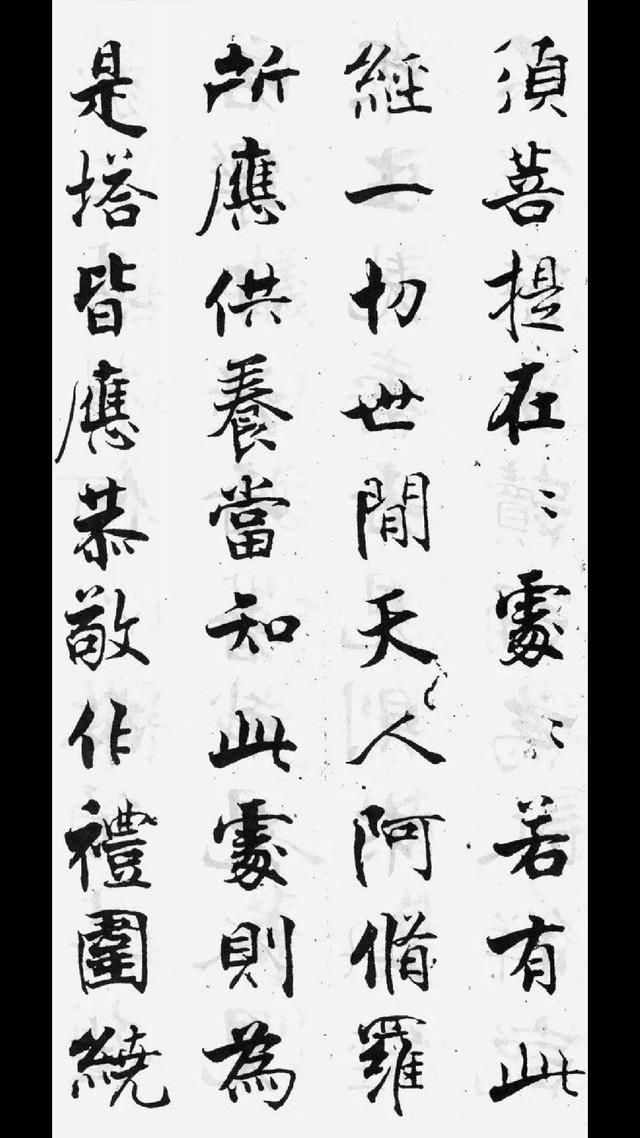 須菩提在〻處〻若有此
經一切世間天人阿脩羅
所應供養當知此處則為
是塔皆應恭敬作禮圍繞